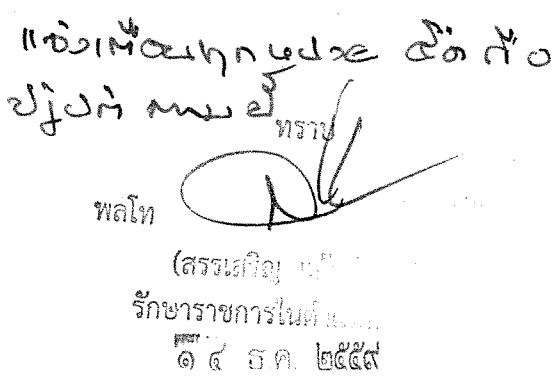 แจ้งเตือนทุกหน่วย ยึดถือ
ปฏิบัติ ตามนี้
ทราบ
พลโท
(สรรเสริญ
รักษาราชการในตำแหน่ง
๑๔ ธ.ค. ๒๕๕๙